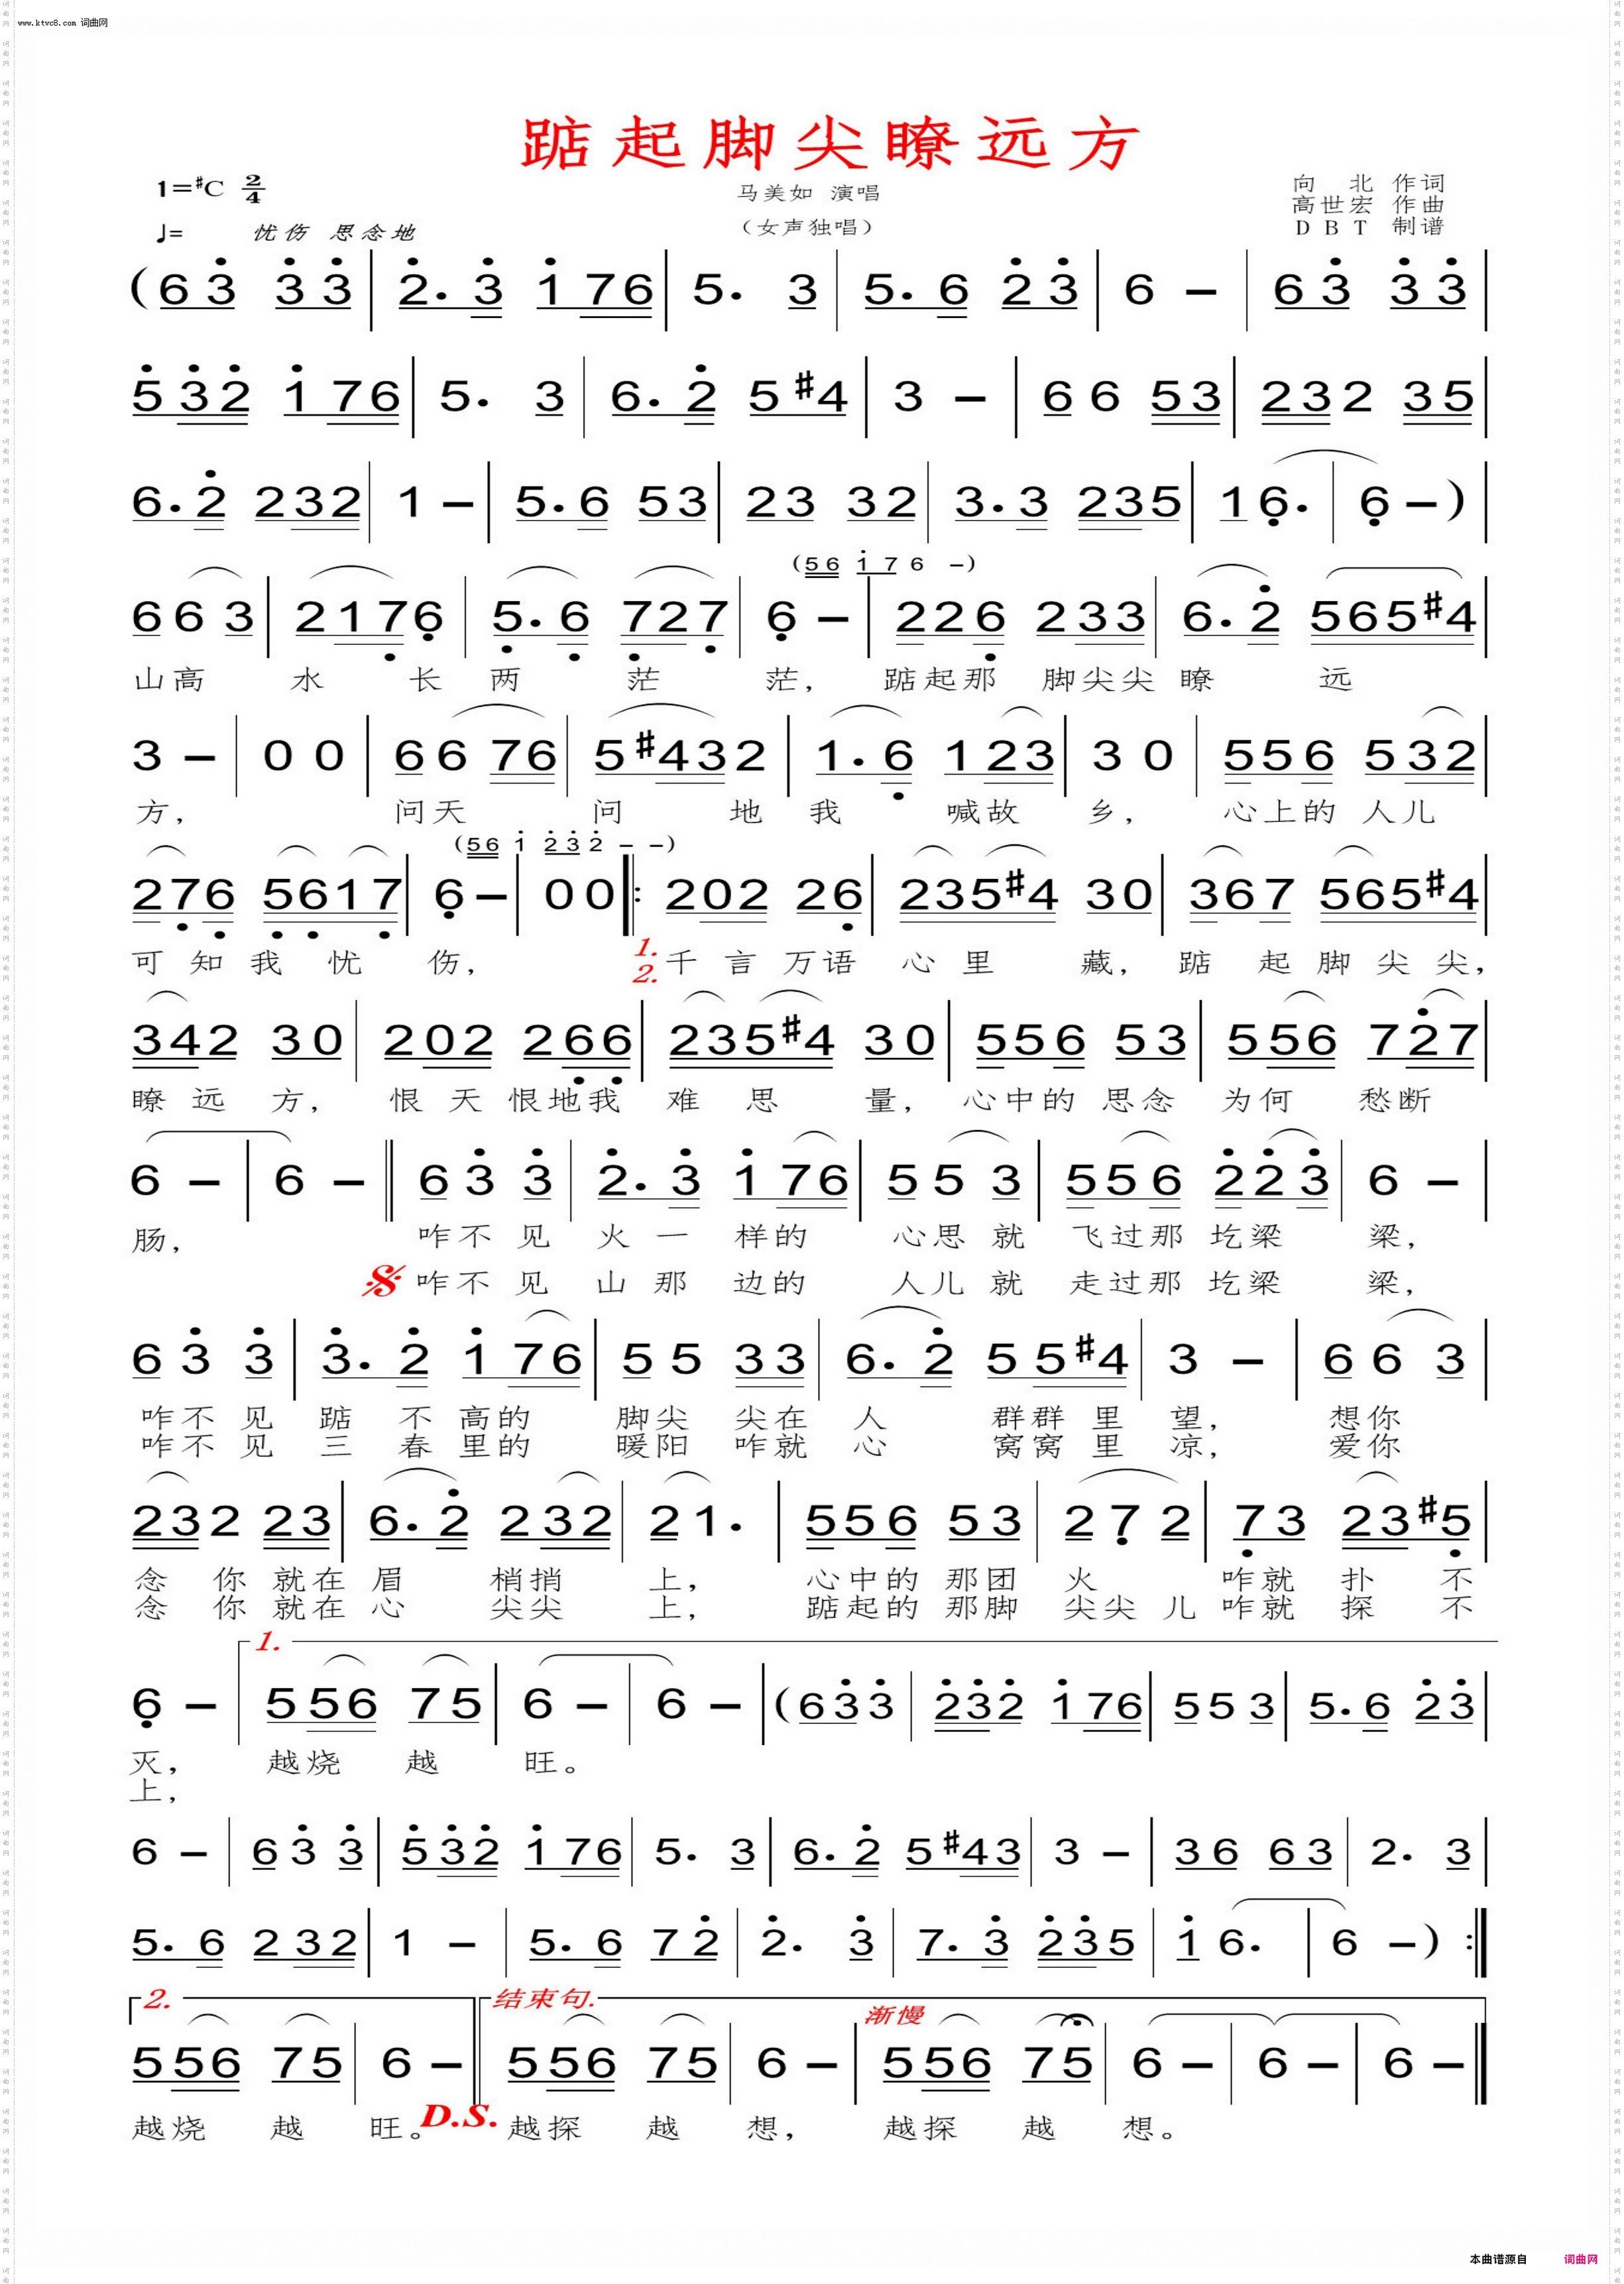 www.ktvc8.com 词曲网
踮起脚尖瞭远方
1=#C 2/4
马美如 演唱
向 北 作词
高世宏 作曲
♩= 忧伤 思念地
(女声独唱)
D B T 制谱
(6 3 3 3 | 2. 3 1 7 6 | 5. 3 | 5. 6 2 3 | 6 – | 6 3 3 3 |
5 3 2 1 7 6 | 5. 3 | 6. 2 5 #4 | 3 – | 6 6 5 3 | 2 3 2 3 5 |
6. 2 2 3 2 | 1 – | 5. 6 5 3 | 2 3 3 2 | 3. 3 2 3 5 | 1 6. | 6 –) |
(5 6 1 7 6 –)
6 6 3 | 2 1 7 6 | 5. 6 7 2 7 | 6 – | 2 2 6 2 3 3 | 6. 2 5 6 5 #4 |
山高 水 长 两 茫 茫, 踮起那 脚尖尖 瞭 远
3 – | 0 0 | 6 6 7 6 | 5 #4 3 2 | 1. 6 1 2 3 | 3 0 | 5 5 6 5 3 2 |
方, 问天 问 地 我 喊故 乡, 心上的 人儿
(5 6 1 2 3 2 – –)
2 7 6 5 6 1 7 | 6 – | 0 0 |: 2 0 2 2 6 | 2 3 5 #4 3 0 | 3 6 7 5 6 5 #4 |
可 知 我 忧 伤, 1. 2. 千 言 万语 心 里 藏, 踮 起 脚 尖 尖,
3 4 2 3 0 | 2 0 2 2 6 6 | 2 3 5 #4 3 0 | 5 5 6 5 3 | 5 5 6 7 2 7 |
瞭 远 方, 恨 天 恨地我 难 思 量, 心中的 思念 为何 愁断
6 – | 6 – || 6 3 3 | 2. 3 1 7 6 | 5 5 3 | 5 5 6 2 2 3 | 6 – |
肠, 咋不 见 火 一 样的 心思 就 飞过那 圪梁 梁,
咋不 见 山 那 边的 人儿 就 走过那 圪梁 梁,
6 3 3 | 3. 2 1 7 6 | 5 5 3 3 | 6. 2 5 5 #4 | 3 – | 6 6 3 |
咋不 见 踮 不 高的 脚尖 尖在 人 群群 里 望, 想你
咋不 见 三 春 里的 暖阳 咋就 心 窝窝 里 凉, 爱你
2 3 2 2 3 | 6. 2 2 3 2 | 2 1. | 5 5 6 5 3 | 2 7 2 | 7 3 2 3 #5 |
念 你 就在 眉 梢捎 上, 心中的 那团 火 咋就 扑 不
念 你 就在 心 尖尖 上, 踮起的 那脚 尖尖 儿 咋就 探 不
1.
6 – | 5 5 6 7 5 | 6 – | 6 – | (6 3 3 | 2 3 2 1 7 6 | 5 5 3 | 5. 6 2 3 |
灭, 越烧 越 旺。
上,
6 – | 6 3 3 | 5 3 2 1 7 6 | 5. 3 | 6. 2 5 #4 3 | 3 – | 3 6 6 3 | 2. 3 |
5. 6 2 3 2 | 1 – | 5. 6 7 2 | 2. 3 | 7. 3 2 3 5 | 1 6. | 6 –) :|
2. 结束句. 渐慢
5 5 6 7 5 | 6 – || 5 5 6 7 5 | 6 – | 5 5 6 7 5 | 6 – | 6 – | 6 – |
越烧 越 旺。 D.S. 越探 越 想, 越探 越 想。
本曲谱源自 词曲网